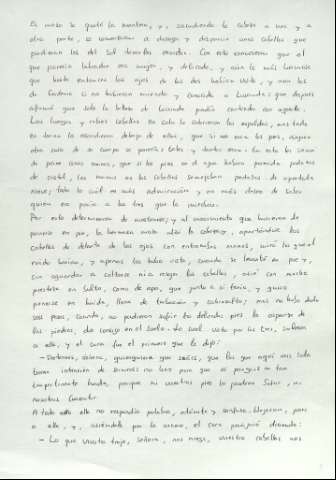 El mozo se quitó la montera, y, sacudiendo la cabeza a una y a
otra parte, se comenzaron a descoger y desparcir unos cabellos que
pudieran los del sol tenerles envidia. Con esto conocieron que el
que parecía labrador era mujer, y delicada, y aún la más hermosa
que hasta entonces los ojos de los dos habían visto, y aun los
de Cardenio si no hubieran mirado y conocido a Luscinda; que después
afirmó que sola la belleza de Luscinda podía contender con aquella.
Los luengos y rubios cabellos no solo le cubrieron las espaldas, mas toda
en torno la escondieron debajo de ellos, que si no eran los pies, ninguna
otra cosa de su cuerpo se parecía; tales y tantos eran. En esto les sirvió
de peine unas manos, que si los pies en el agua habían parecido pedazos
de cristal, las manos en los cabellos semejaban pedazos de apretada
nieve; todo lo cual en más admiración y en más deseo de saber
quien era ponía a los tres que la miraban.
Por esto determinaron de mostrarse; y al movimiento que hicieron de
ponerse en pie, la hermosa moza alzó la cabeza y, apartándose los
cabellos de delante de los ojos con entrambas manos, miró los que el
ruido hacían, y apenas los hubo visto, cuando se levantó en pie y,
sin aguardar a calzarse ni a recoger los cabellos, asió con mucha
presteza un bulto, como de ropa, que junto a sí tenía, y quiso
ponerse en huida, llena de turbación y sobresalto; mas no hubo dado
seis pasos, cuando, no pudiendo sufrir los delicados pies la aspereza de
las piedras, dio consigo en el suelo. Lo cual visto por los tres, salieron
a ella, y el cura fue el primero que le dijo:
- Deteneos, señora, quienquiera que seáis, que los que aquí veis solo
tienen intención de serviros no hay para que os pongáis en tan
impertinente huida, porque ni vuestros pies lo podrán sufrir, ni
nosotros consentir.
A todo esto ella no respondía palabra, atónita y confusa. Llegaron, pues
a ella, y, asiéndola por la mano, el cura prosiguió diciendo:
- Lo que vuestro traje, señora, nos niega, vuestros cabellos nos